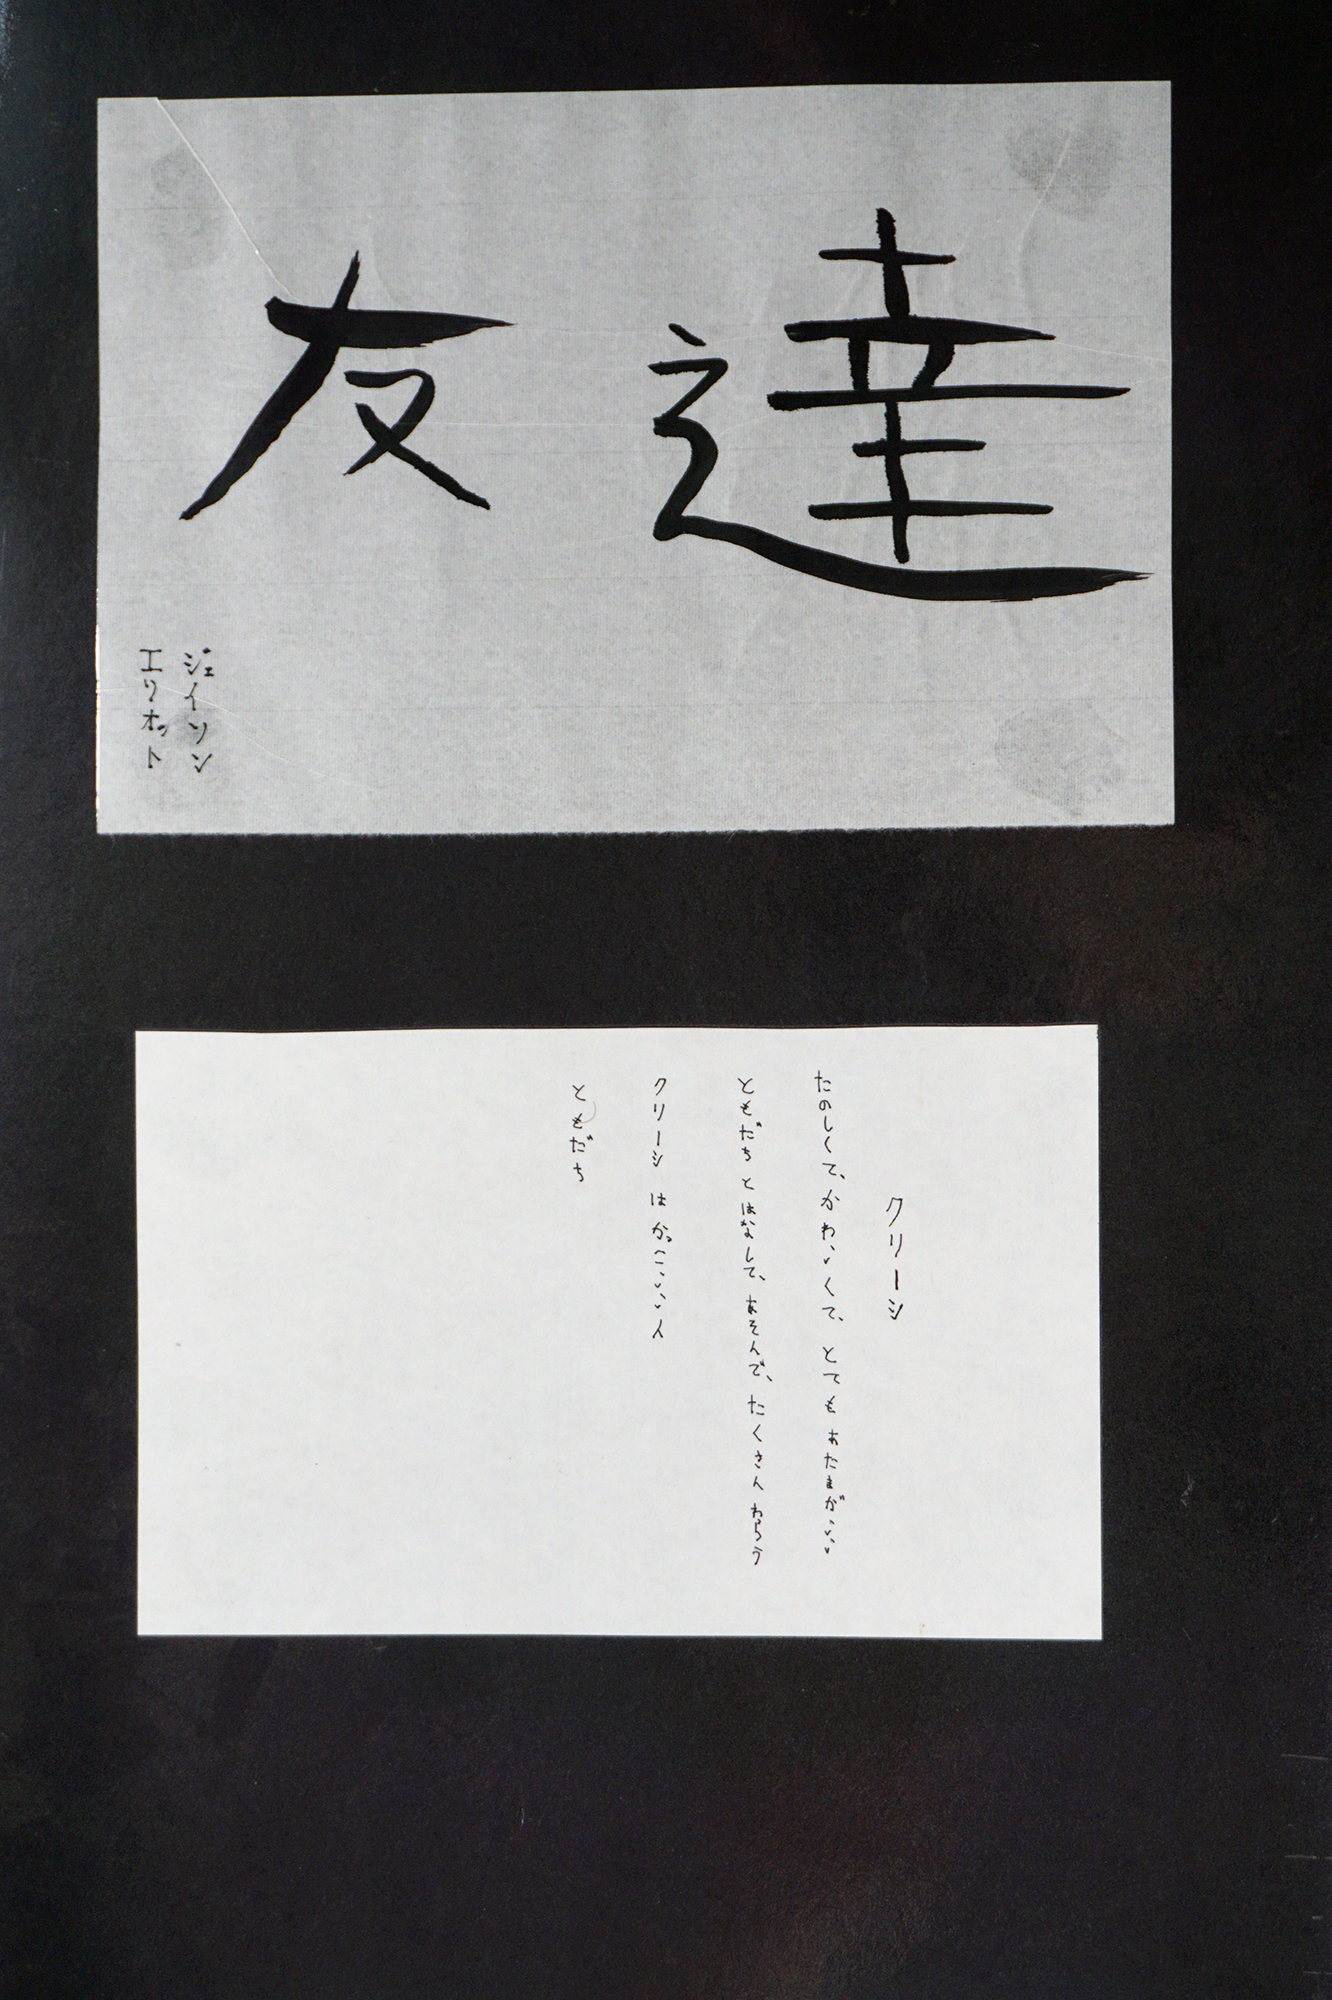 友達
ジェイソン
エリオット
クリーシ
たのしくて、かわいくて、とてもあたまがいい
ともだちとはなして、あそんで、たくさんわらう
クリーシ は かっこいい人
ともだち